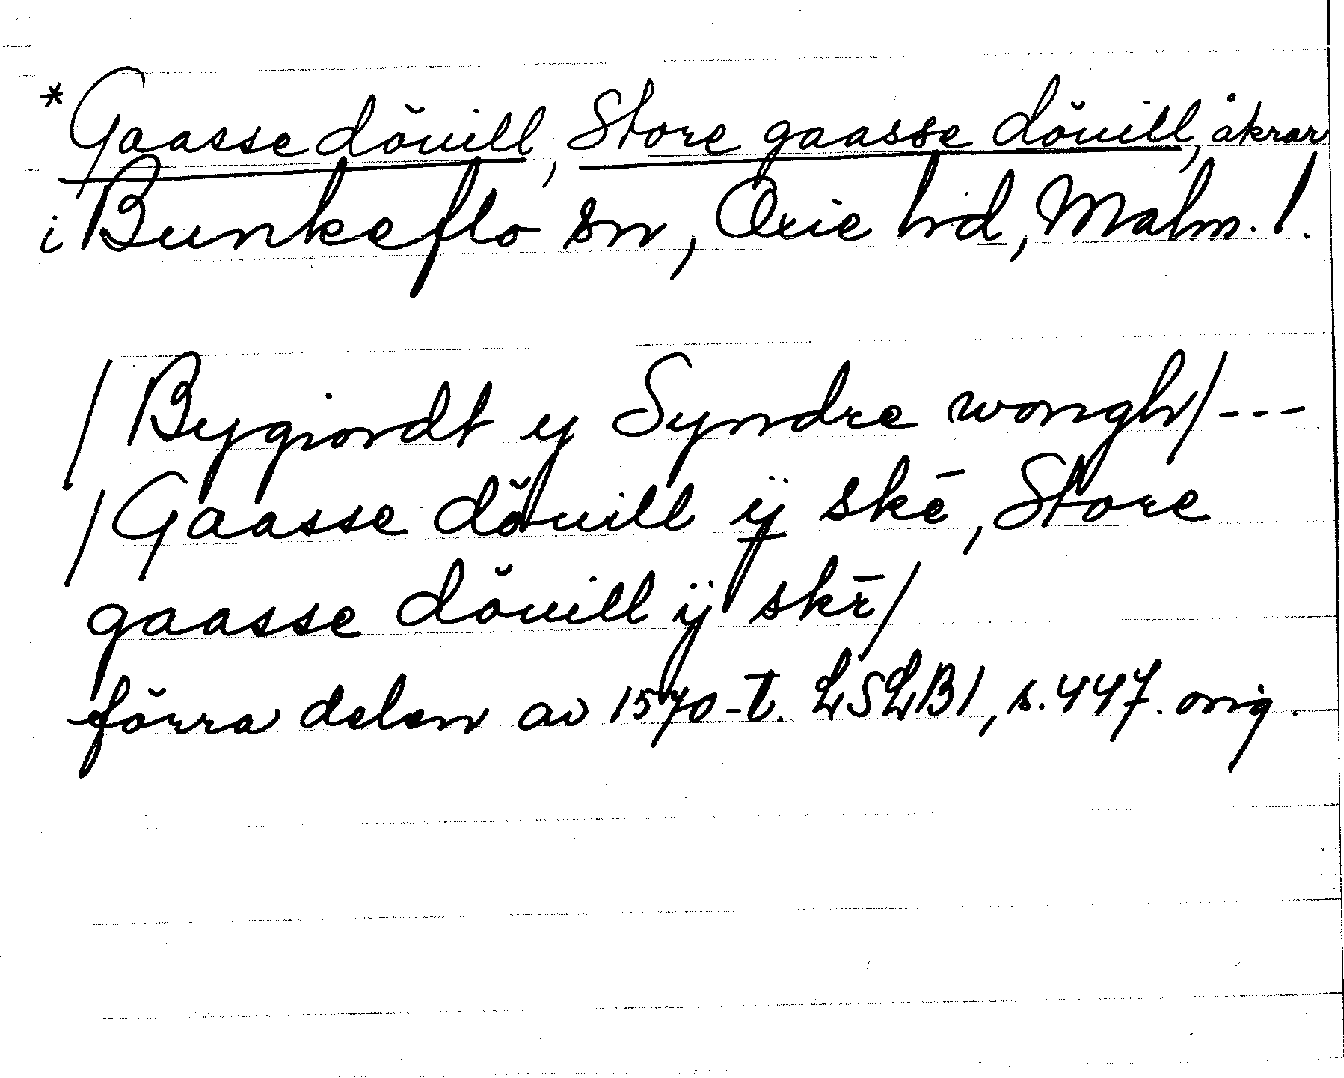 *Gaasse dŏuill, Store gaasse dŏuill, åkrar
i Bunkeflo sn, Oxie hd, Malm. l.
/Bygiordt y Syndre wongh/---
/Gaasse dŏuill ij skē, Store
gaasse dŏuill ij skē/
förra delen av 1570-t. LSLB1, s.447. orig.